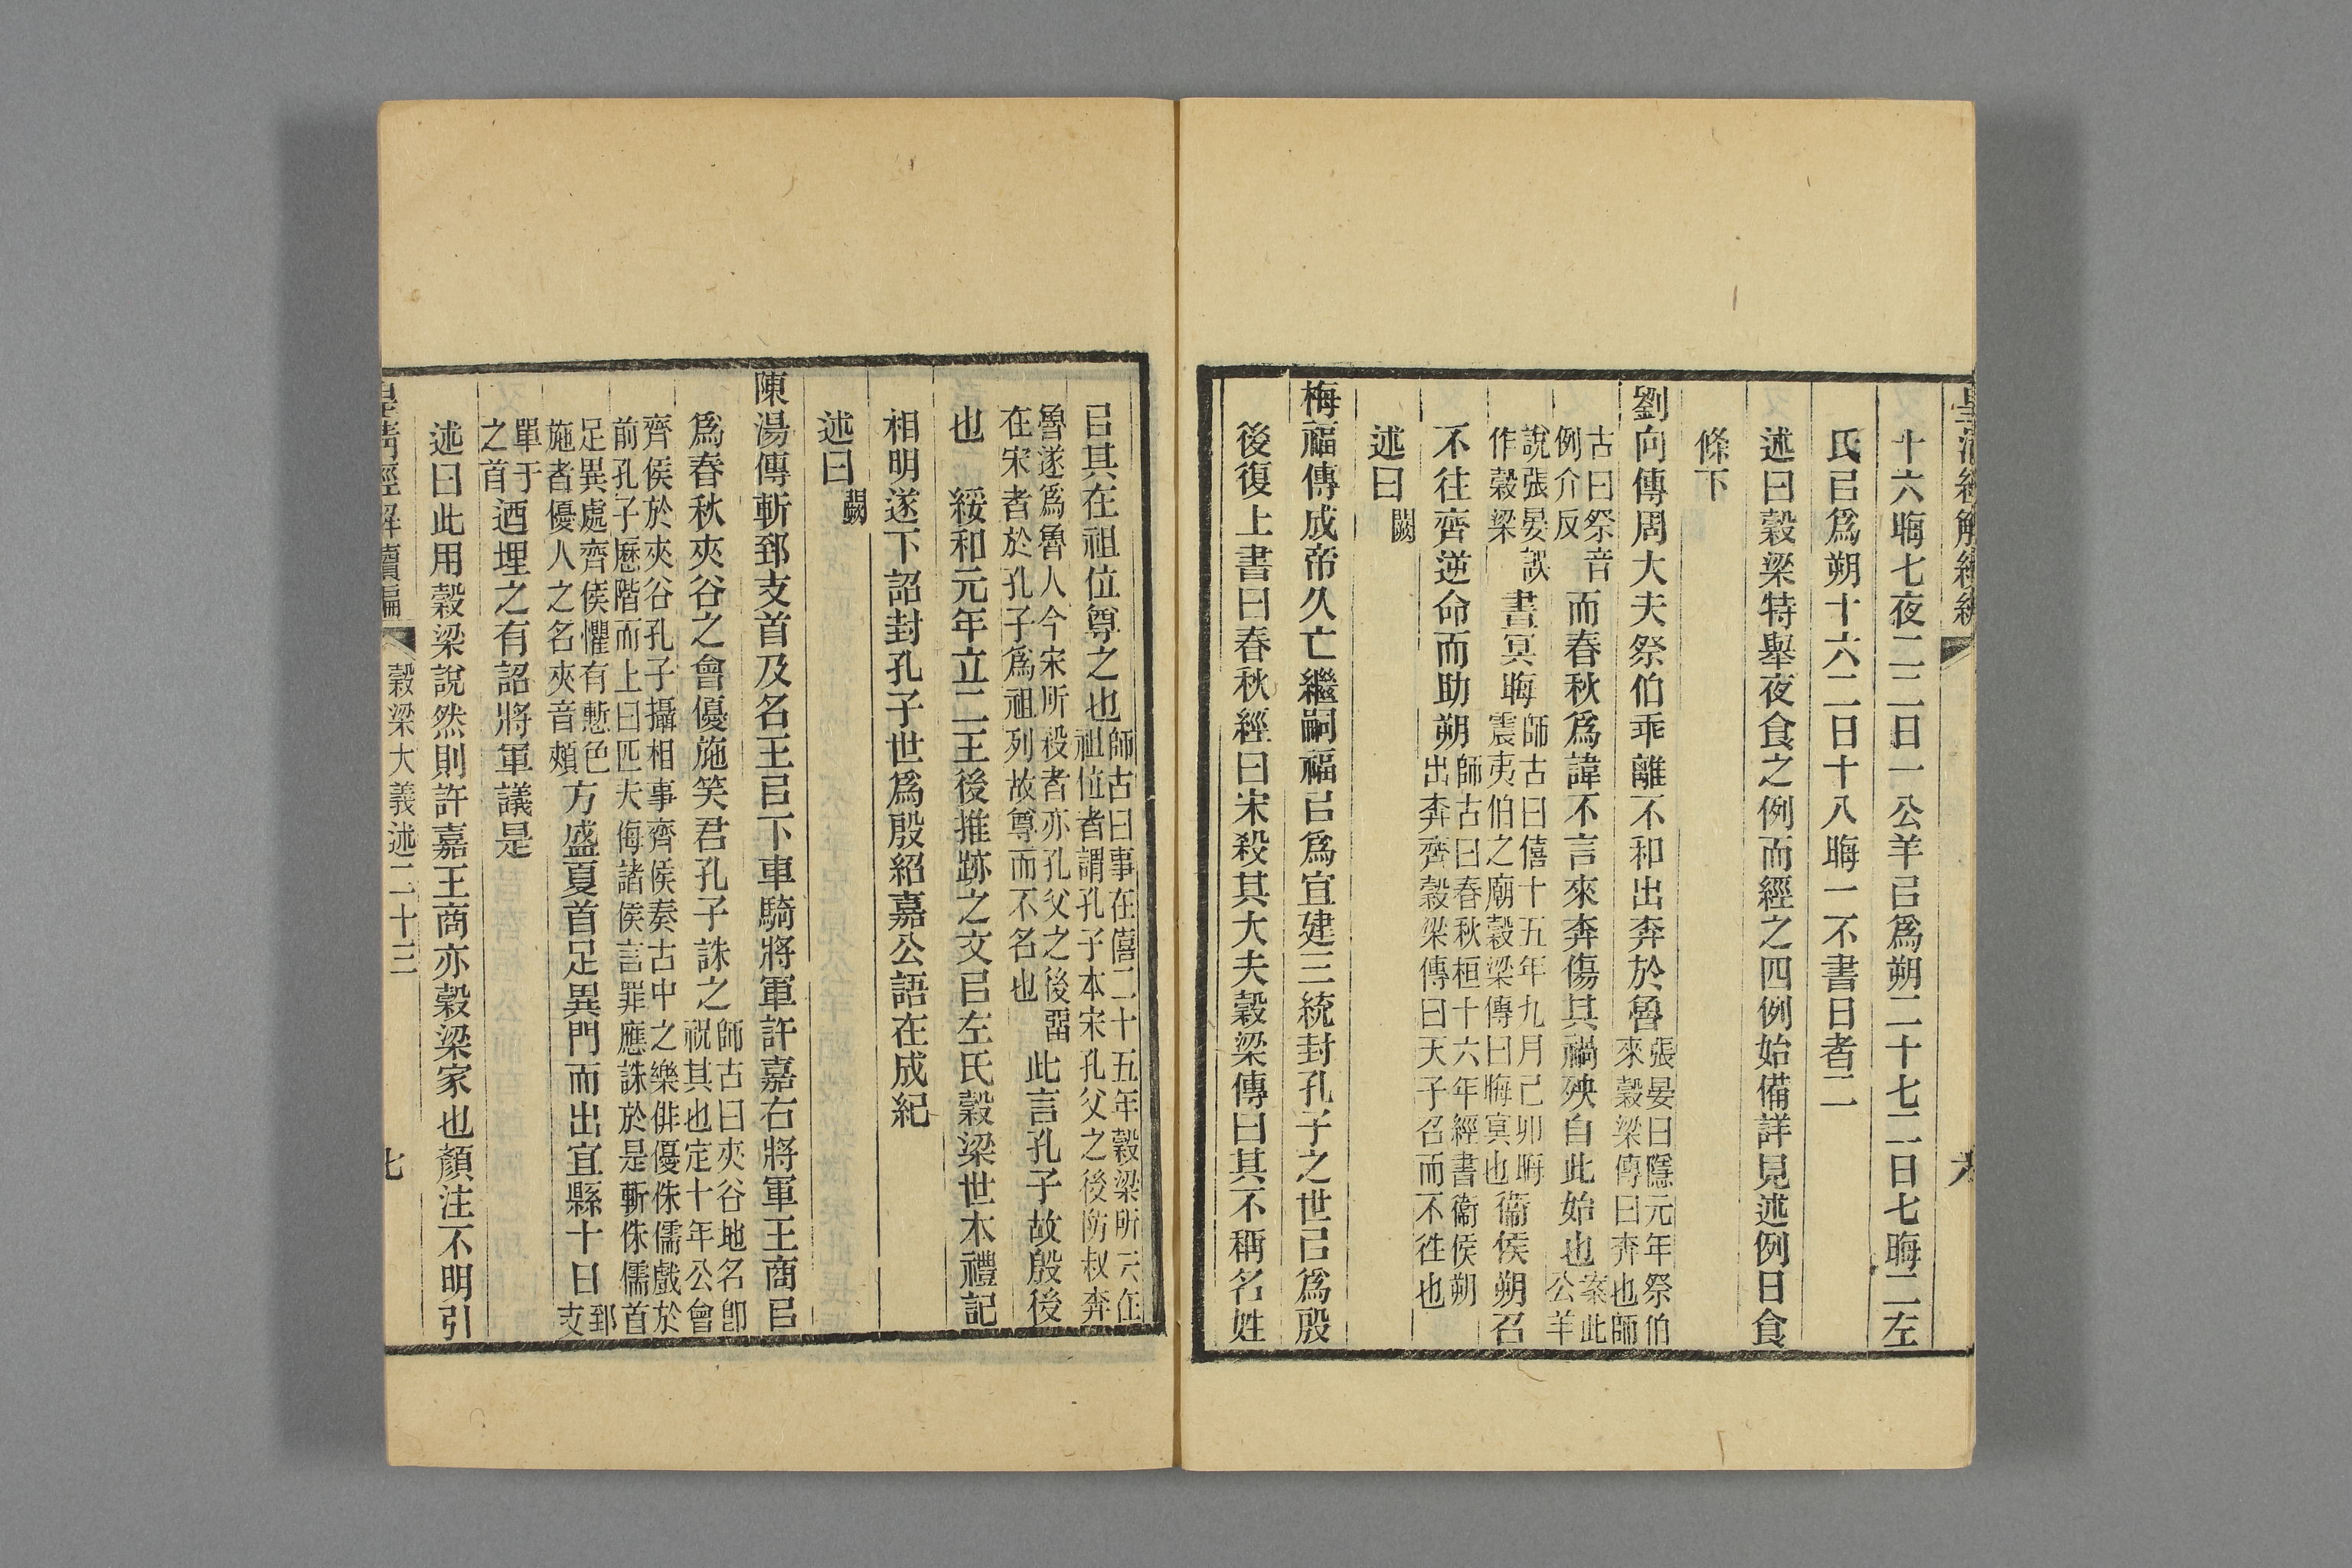 皇清經解續編
十六晦七夜二二日一公羊㠯爲朔二十七二日七晦二左
氏㠯爲朔十六二日十八晦一不書日者二
述曰穀梁特舉夜食之例而經之四例始備詳見述例日食
條下
劉向傳周大夫祭伯乖離不和出奔於魯張晏曰隱元年祭伯來穀梁傳曰奔也師
古曰祭音例介反而春秋爲諱不言來奔傷其禍殃自此始也案此公羊
說張晏誤作穀梁晝冥晦師古曰僖十五年九月己卯晦震夷伯之廟穀梁傳曰晦冥也衞侯朔召
不往齊逆命而助朔師古曰春秋桓十六年經書衞侯朔出奔齊穀梁傳曰天子召而不徃也
述曰闕
梅福傳成帝久亡繼嗣福㠯爲宜建三統封孔子之世㠯爲殷
後復上書曰春秋經曰宋殺其大夫穀梁傳曰其不稱名姓
㠯其在祖位尊之也師古曰事在僖二十五年穀梁所云在祖位者謂孔子本宋孔父之後防叔奔
魯遂爲魯人今宋所殺者亦孔父之後畱在宋者於孔子爲祖列故尊而不名也此言孔子故殷後
也　綏和元年立二王後推跡之文㠯左氏穀梁世本禮記
相明遂下詔封孔子世爲殷紹嘉公語在成紀
述曰闕
陳湯傳斬郅支首及名王㠯下車騎將軍許嘉右將軍王商㠯
爲春秋夾谷之會優施笑君孔子誅之師古曰夾谷地名卽祝其也定十年公會
齊侯於夾谷孔子攝相事齊侯奏古中之樂俳優侏儒戲於前孔子厯階而上曰匹夫侮諸侯言罪應誅於是斬侏儒首
足異處齊侯懼有慙色施者優人之名夾音頰方盛夏首足異門而出宜縣十日郅支
單于之首迺埋之有詔將軍議是
述曰此用穀梁說然則許嘉王商亦穀梁家也顏注不明引
皇淸經解續編　穀梁大義述二十三　七